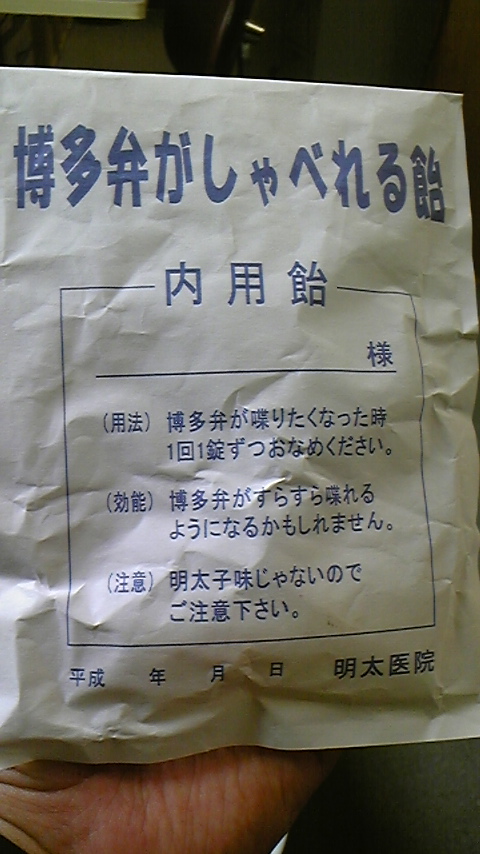 博多弁がしゃべれる飴
内用飴
様
（用法） 博多弁が喋りたくなった時
1回1錠ずつおなめください。
（効能） 博多弁がすらすら喋れる
ようになるかもしれません。
（注意） 明太子味じゃないので
ご注意下さい。
平成 年 月 日 明太医院